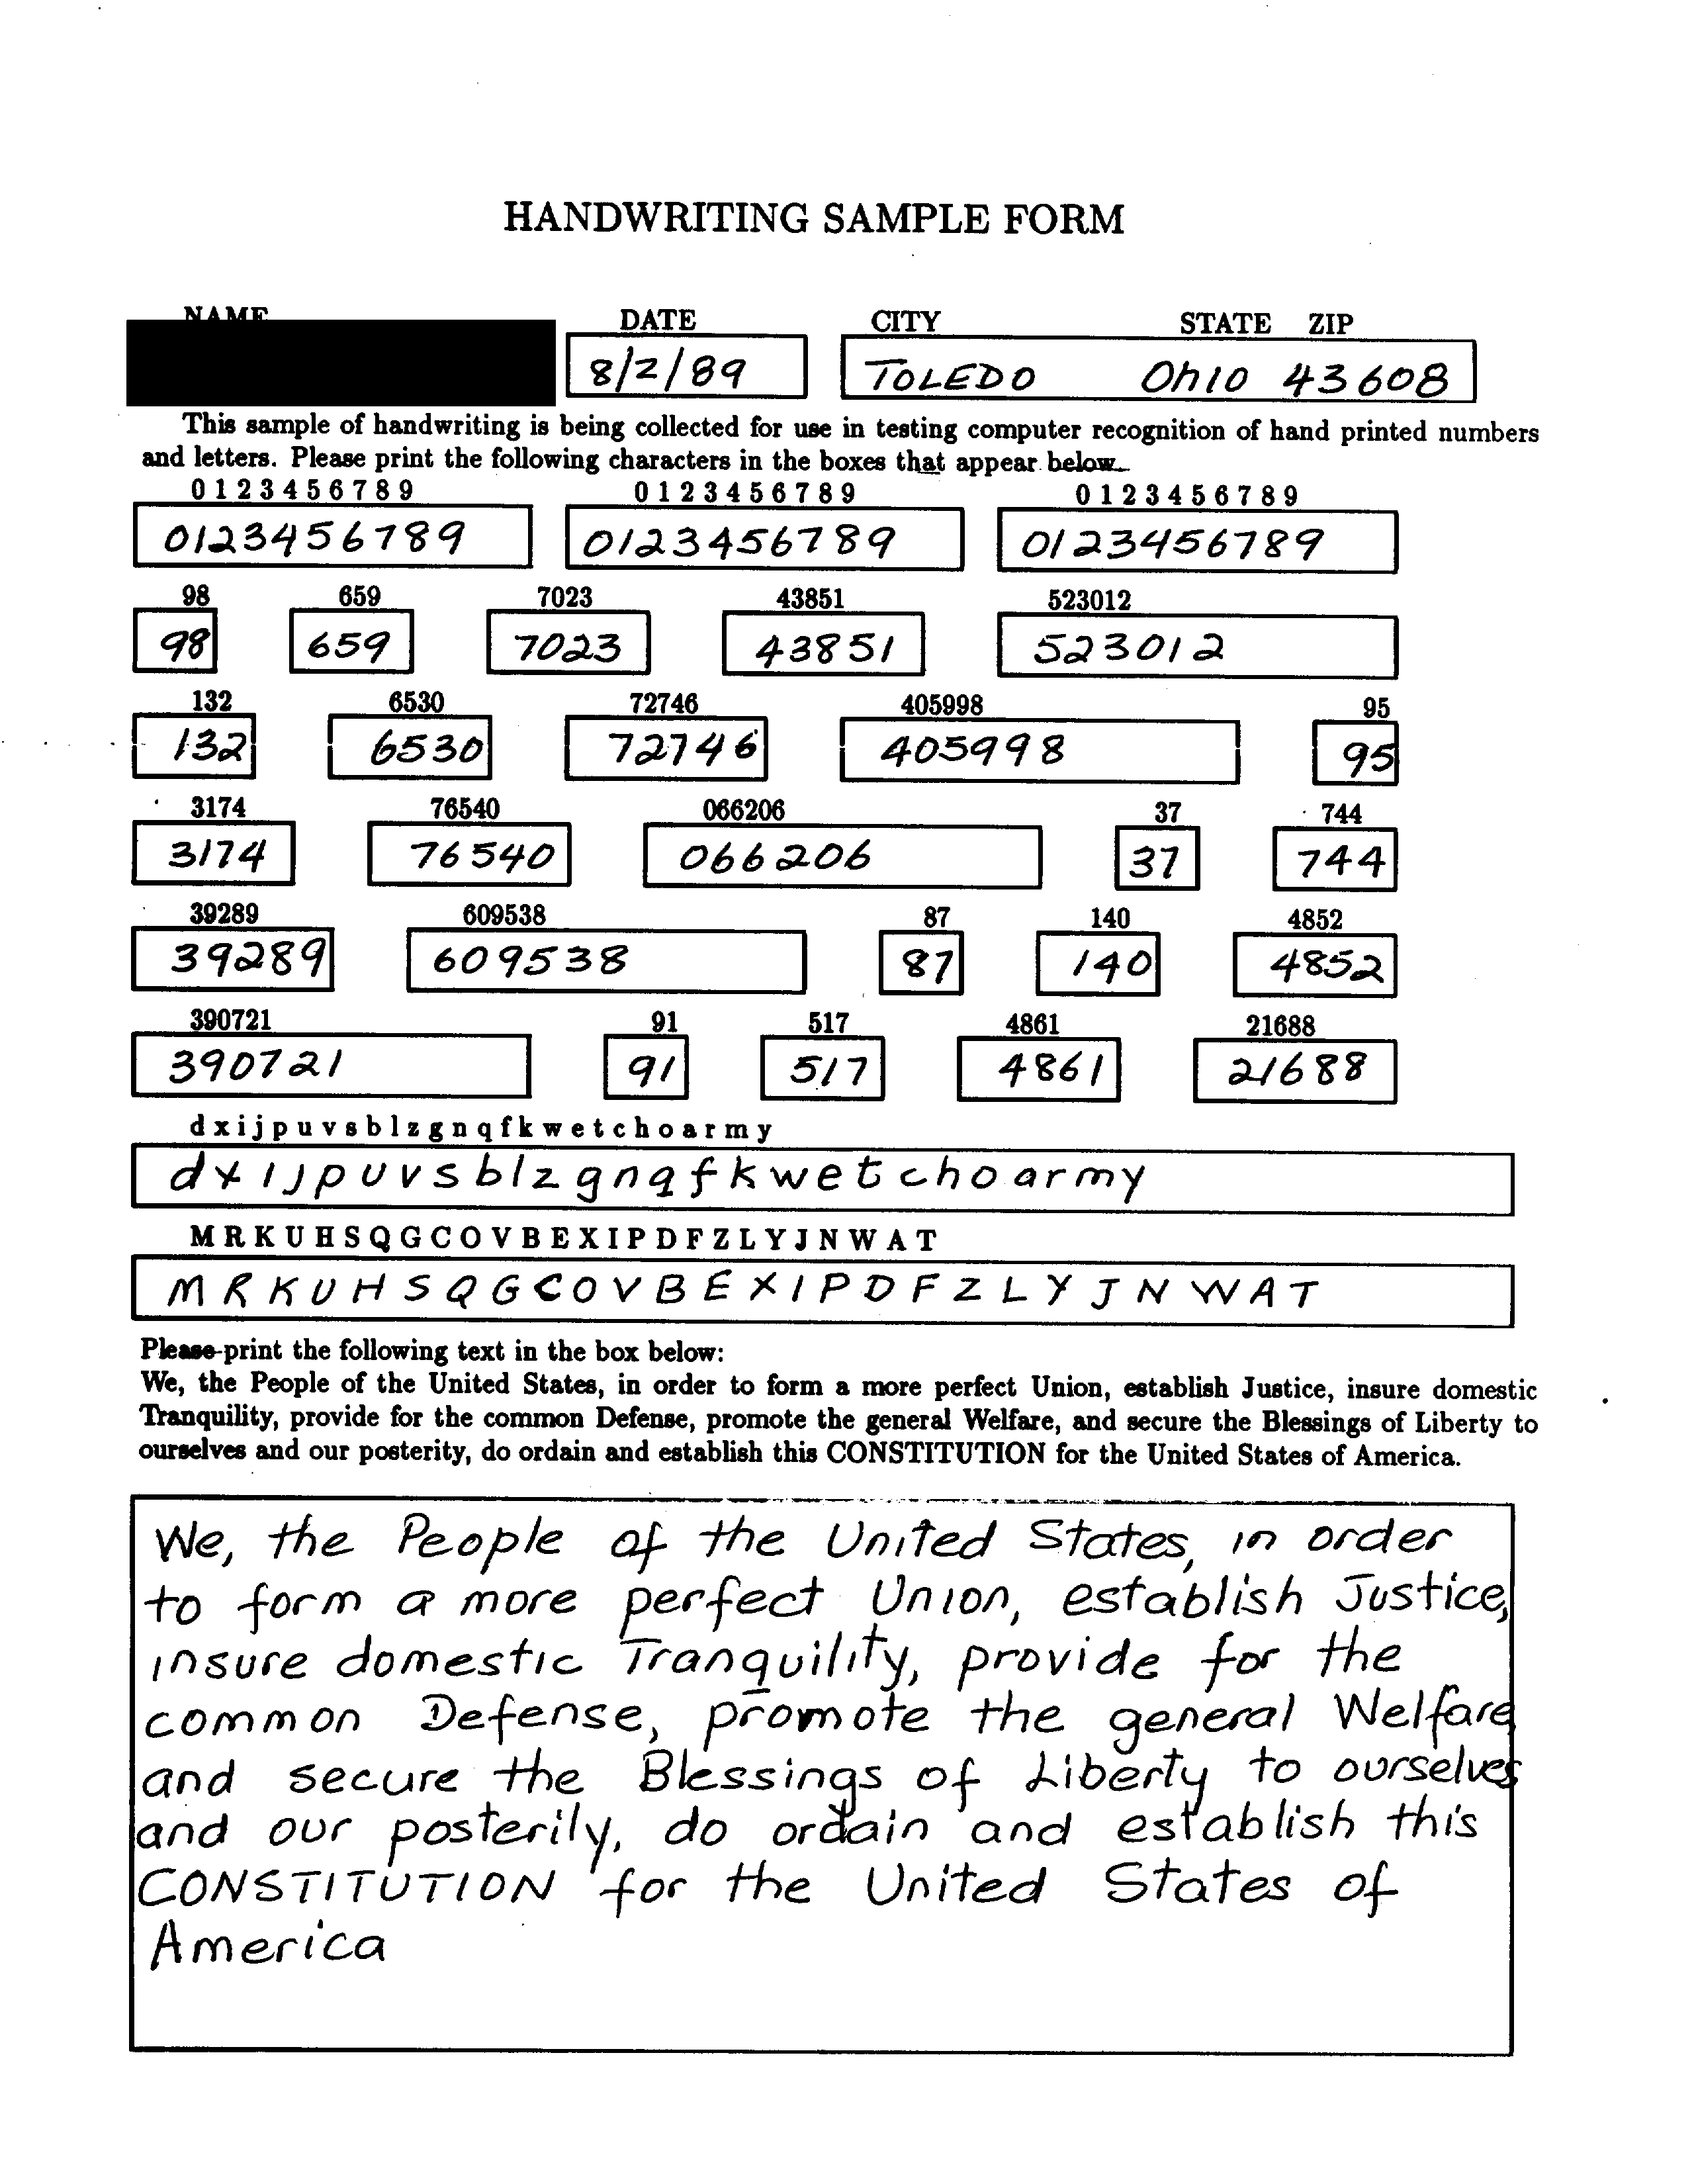 HANDWRITING SAMPLE FORM
NAME DATE CITY STATE ZIP
8/2/89 TOLEDO Ohio 43608
This sample of handwriting is being collected for use in testing computer recognition of hand printed numbers
and letters. Please print the following characters in the boxes that appear below.
0 1 2 3 4 5 6 7 8 9 0 1 2 3 4 5 6 7 8 9 0 1 2 3 4 5 6 7 8 9
0123456789 0123456789 0123456789
98 659 7023 43851 523012
98 659 7023 43851 523012
132 6530 72746 405998 95
132 6530 72746 405998 95
3174 76540 066206 37 744
3174 76540 066206 37 744
39289 609538 87 140 4852
39289 609538 87 140 4852
390721 91 517 4861 21688
390721 91 517 4861 21688
d x i j p u v s b l z g n q f k w e t c h o a r m y
d x i j p u v s b l z g n q f k w e t c h o a r m y
M R K U H S Q G C O V B E X I P D F Z L Y J N W A T
M R K U H S Q G C O V B E X I P D F Z L Y J N W A T
Please print the following text in the box below:
We, the People of the United States, in order to form a more perfect Union, establish Justice, insure domestic
Tranquility, provide for the common Defense, promote the general Welfare, and secure the Blessings of Liberty to
ourselves and our posterity, do ordain and establish this CONSTITUTION for the United States of America.
We, the People of the United States, in order
to form a more perfect Union, establish Justice,
insure domestic Tranquility, provide for the
common Defense, promote the general Welfare
and secure the Blessings of Liberty to ourselves
and our posterily, do ordain and establish this
CONSTITUTION for the United States of
America